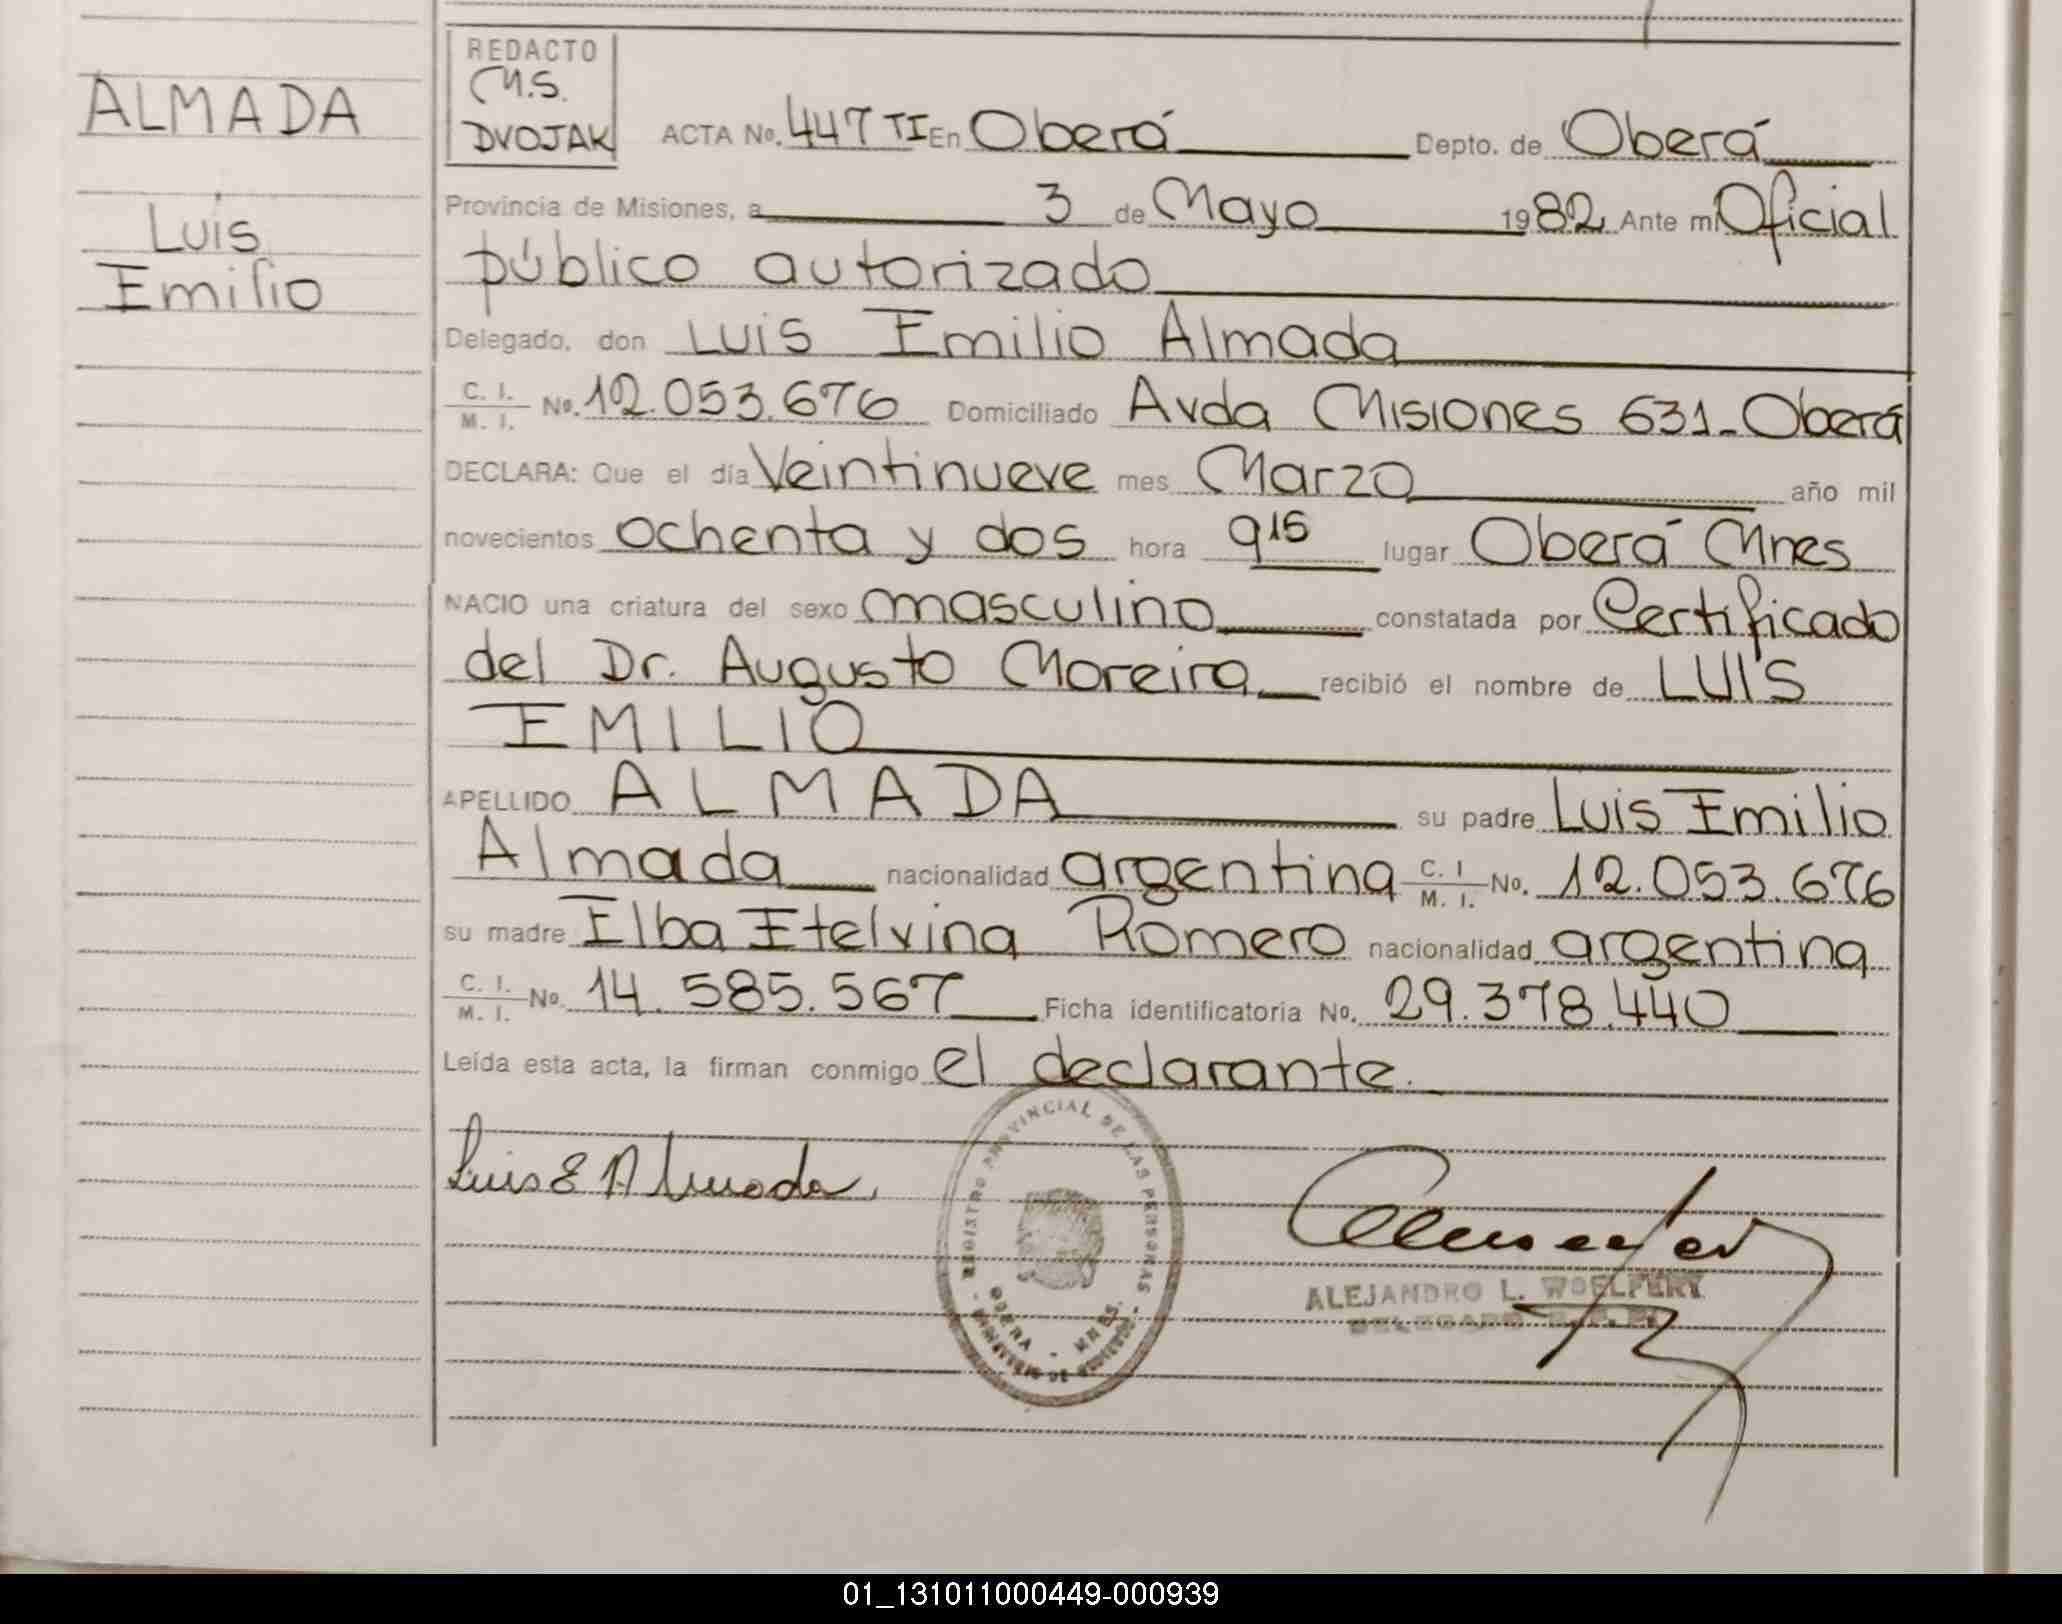 ALMADA
Luis
Emilio
REDACTO
M.S.
DVOJAK
ACTA No. 447 TI En Oberá Depto. de Oberá
Provincia de Misiones, a 3 de Mayo 1982 Ante mi Oficial
público autorizado
Delegado, don Luis Emilio Almada
C. I. / M. I. No. 12.053.676 Domiciliado Avda Misiones 631-Oberá
DECLARA: Que el día Veintinueve mes Marzo año mil
novecientos ochenta y dos hora 9 15 lugar Oberá Mnes
NACIO una criatura del sexo masculino constatada por Certificado
del Dr. Augusto Moreira recibió el nombre de LUIS
EMILIO
APELLIDO ALMADA su padre Luis Emilio
Almada nacionalidad argentina C. I / M. I. No. 12.053.676
su madre Elba Etelvina Romero nacionalidad argentina
C. I. / M. I. No. 14.585.567 Ficha identificatoria No. 29.378.440
Leída esta acta, la firman conmigo el declarante.
Luis E Almada
REGISTRO PROVINCIAL DE LAS PERSONAS
OBERA - MNES.
MINISTERIO DE GOBIERNO
ALEJANDRO L. WOELFERT
DELEGADO R. P. P.
01_131011000449-000939